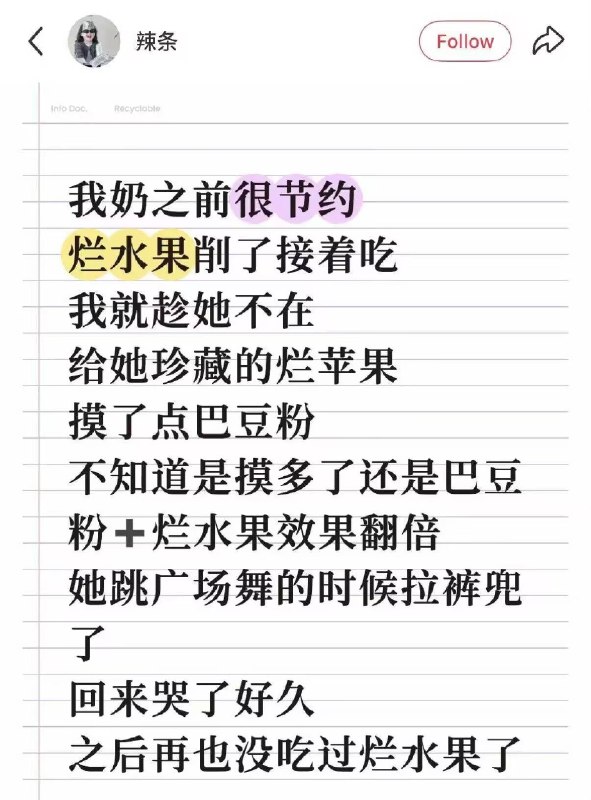 辣条
Follow
Info Doc. Recyclable
我奶之前很节约
烂水果削了接着吃
我就趁她不在
给她珍藏的烂苹果
摸了点巴豆粉
不知道是摸多了还是巴豆
粉➕烂水果效果翻倍
她跳广场舞的时候拉裤兜
了
回来哭了好久
之后再也没吃过烂水果了